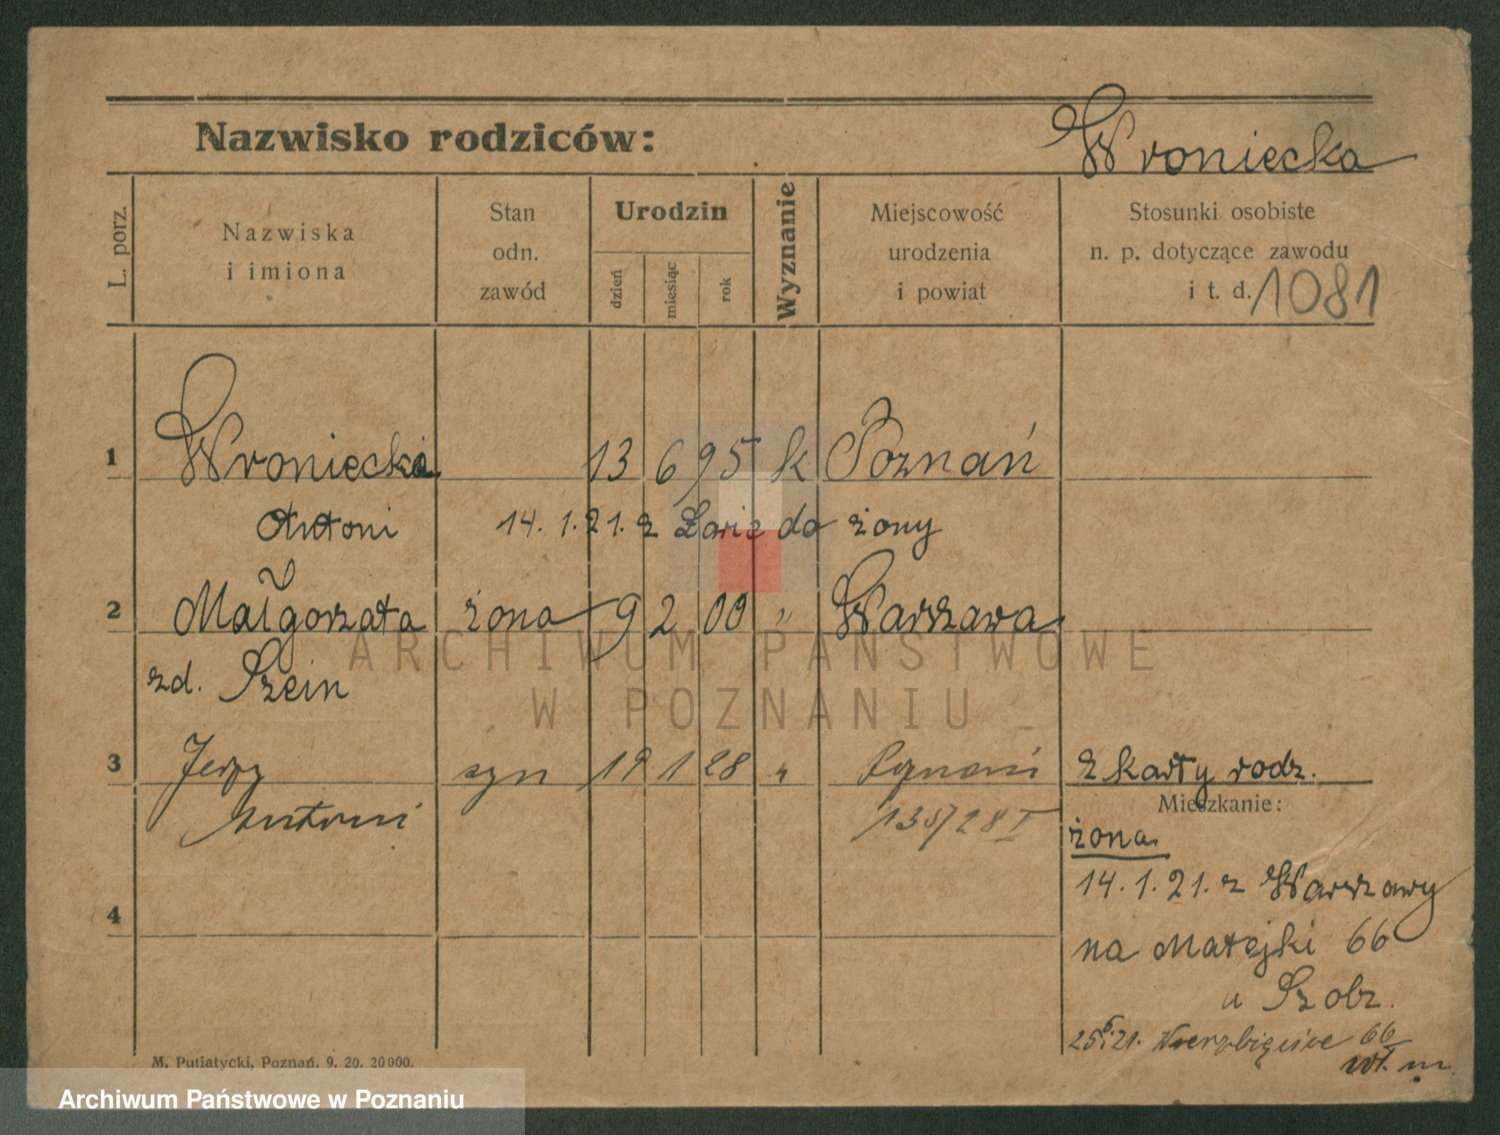 Nazwisko rodziców:
Wroniecka
L. porz.
Nazwiska
i imiona
Stan
odn.
zawód
Urodzin
dzień
miesiąc
rok
Wyznanie
Miejscowość
urodzenia
i powiat
Stosunki osobiste
n. p. dotyczące zawodu
i t. d.
1081
1 Wroniecki 13 6 95 k Poznań
Antoni 14. 1. 21. z do żony
2 Małgorzata żona 9 2 00 " Warszawa
zd. Szein
3 Jerzy syn 19 1 28 " Poznań z karty rodz.
Antoni 135/28 I
Mieszkanie:
żona
14. 1. 21. z Warszawy
4
na Matejki 66
u Szobz.
25.6.21. Wierzbięcice 66
wł. m.
M. Putiatycki, Poznań. 9. 20. 20000.
ARCHIWUM PAŃSTWOWE
W POZNANIU
Archiwum Państwowe w Poznaniu